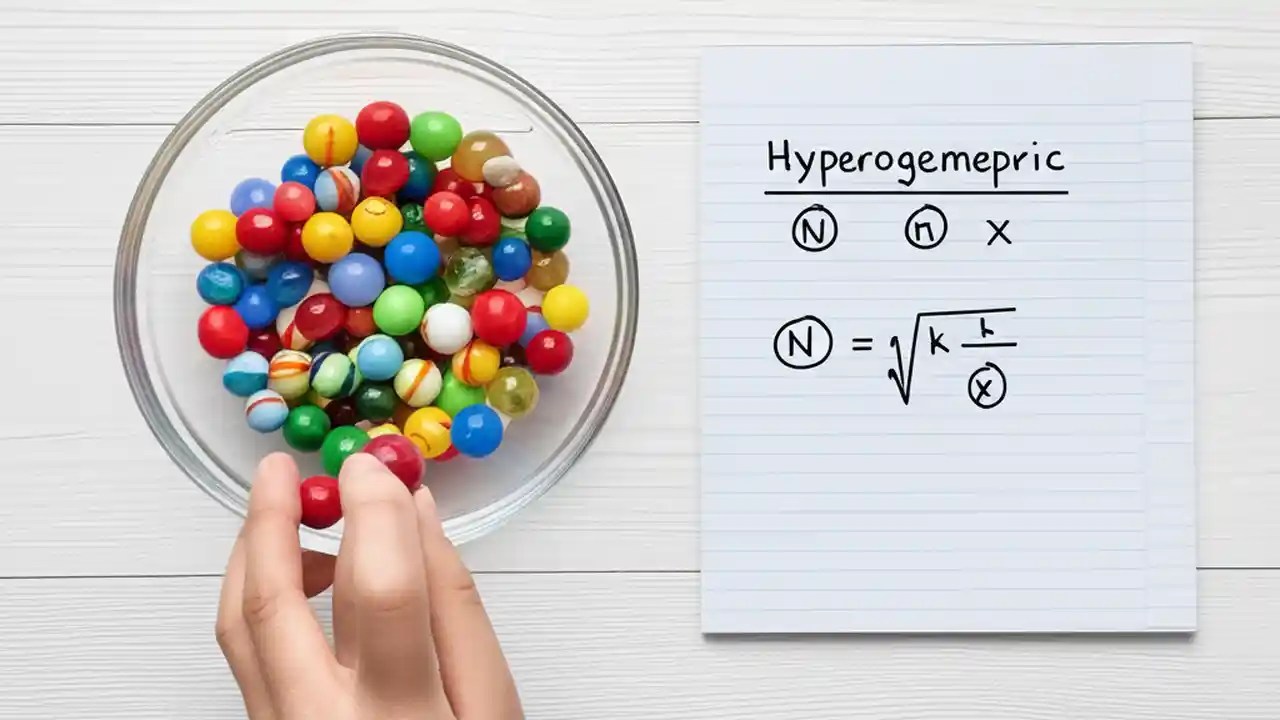 Hyperogemepric
N n x
N = √k h/x